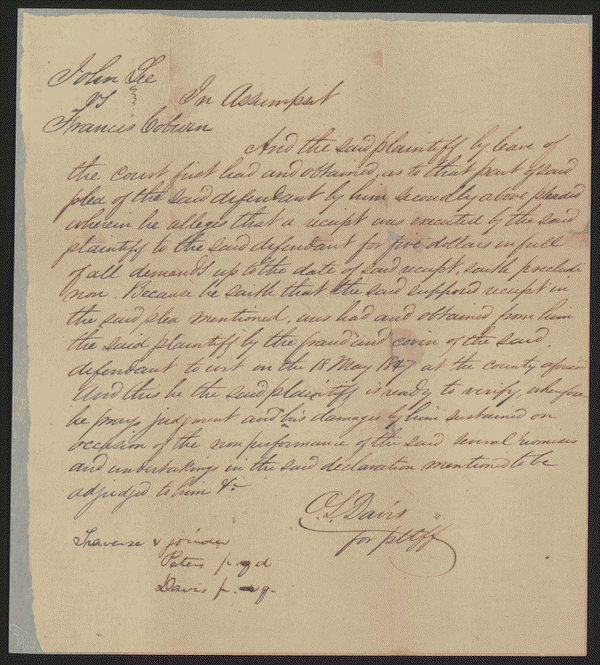 John Lee
vs
Francis Coburn
In Assumpsit
And the said plaintiff by leave of
the court first had and obtained, as to that part of said
plea of the said defendant by him secondly above pleaded
wherein he alleges that a receipt was executed by the said
plaintiff to the said defendant for five dollars in full
of all demands up to the date of said receipt, saith preclude
non. Because he saith that the said supposed receipt in
the said plea mentioned, was had and obtained from him
the said plaintiff by the fraud and covin of the said
defendant to wit on the 18 May 1847 at the county aforesaid
And this he the said plaintiff is ready to verify, wherefore
he prays judgment and his damages by him sustained on
occasion of the non performance of the said several promises
and undertakings in the said declaration mentioned to be
adjudged to him &c
C. L. Davis
for pltff
Traverse & joinder
Peters p. q d
Davis p. q.